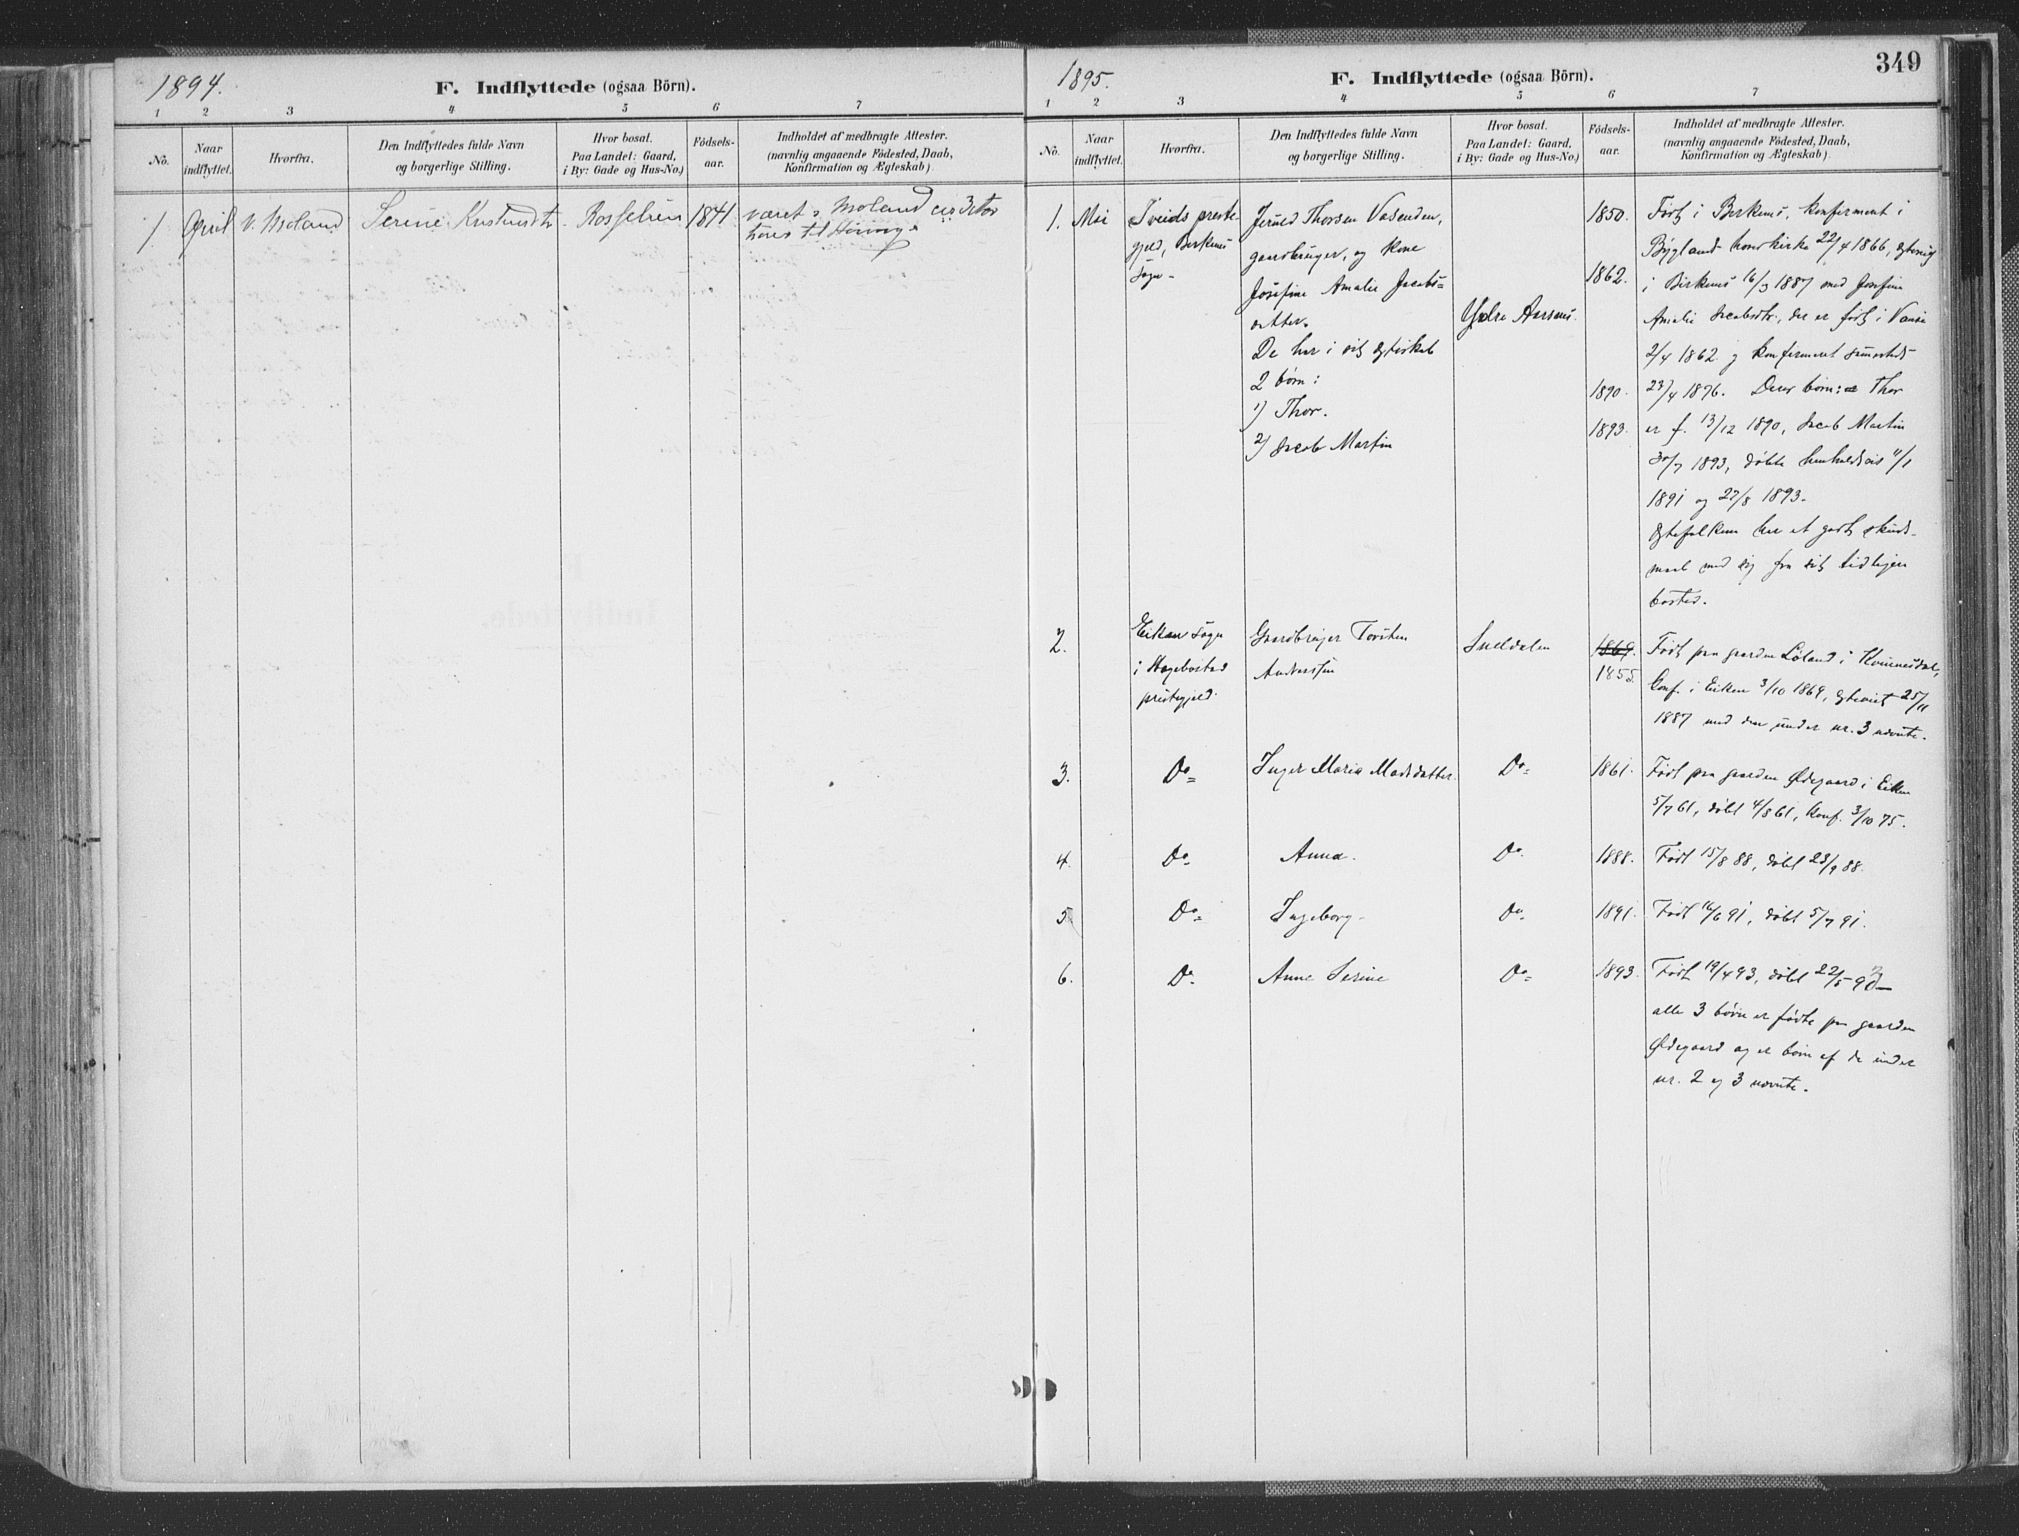 1894.
F. Indflyttede (ogsaa Börn).
1 2 3 4 5 6 7
No.
Naar indflyttet.
Hvorfra.
Den Indflyttedes fulde Navn
og borgerlige Stilling.
Hvor bosat.
Paa Landet: Gaard,
i By: Gade og Hus-No.)
Födsels-
aar.
Indholdet af medbragte Attester.
(navnlig angaaende Födested, Daab,
Konfirmation og Ægteskab)
1 April V. Moland Serine 1841 været i Moland
1895.
F. Indflyttede (ogsaa Börn).
349
1 2 3 4 5 6 7
No.
Naar
indflyttet.
Hvorfra.
Den Indflyttedes fulde Navn
og borgerlige Stilling.
Hvor bosat.
Paa Landet: Gaard,
i By: Gade og Hus-No.)
Födsels-
aar.
Indholdet af medbragte Attester.
(navnlig angaaende Födested, Daab,
Konfirmation og Ægteskab)
1. Mai Tveids preste Thorsen Vasenden, 1850. Født i Birkenæs, konfirmeret i
gjeld, Birkenæs gaardbruger, og kone Bygland 22/4 1866, ægteviet
sogn Josefine Amalie Jacobs= 1862. i Birkenæs 16/3 1887 med Josefine
datter. Ydre Amalie Jacobsdtr., der er født i Vanse
De har i sit ægteskab 2/4 1862 og konfirmeret sammesteds
2 børn: 1890. 23/4 1876. Deres børn: Thor
1) Thor. 1893. er f. 13/12 1890, Jacob Martin
2) Jacob Martin 30/7 1893, døbte henholdsvis 11/1
1891 og 27/8 1893.
Ægtefolkene har et godt skuds-
maal med sig fra sit tidligere
bosted.
2. Eiken sogn Gaardbruger Torsten 1869. Født paa gaarden Løland i Kvinnesdal,
i Hægebostad Andersen 1855. Konf. i Eiken 3/10 1869, ægteviet 25/11
prestegjeld. 1887 med den under nr. 3 nævnte.
3. Do= Inger Maria Madsdatter Do= 1861. Født paa gaarden Ødegaard i Eiken
5/7 61, døbt 4/8 61, konf. 3/10 75.
4. Do= Anna. Do. 1888. Født 15/8 88, døbt 23/9 88.
5 Do= Ingeborg Do. 1891. Født 16/6 91, døbt 5/7 91.
6. Do. Anne Serine Do= 1893. Født 19/4 93, døbt 22/5 93
alle 3 børn er fødte paa gaarden
Ødegaard og er børn af de under
nr. 2 og 3 nævnte.